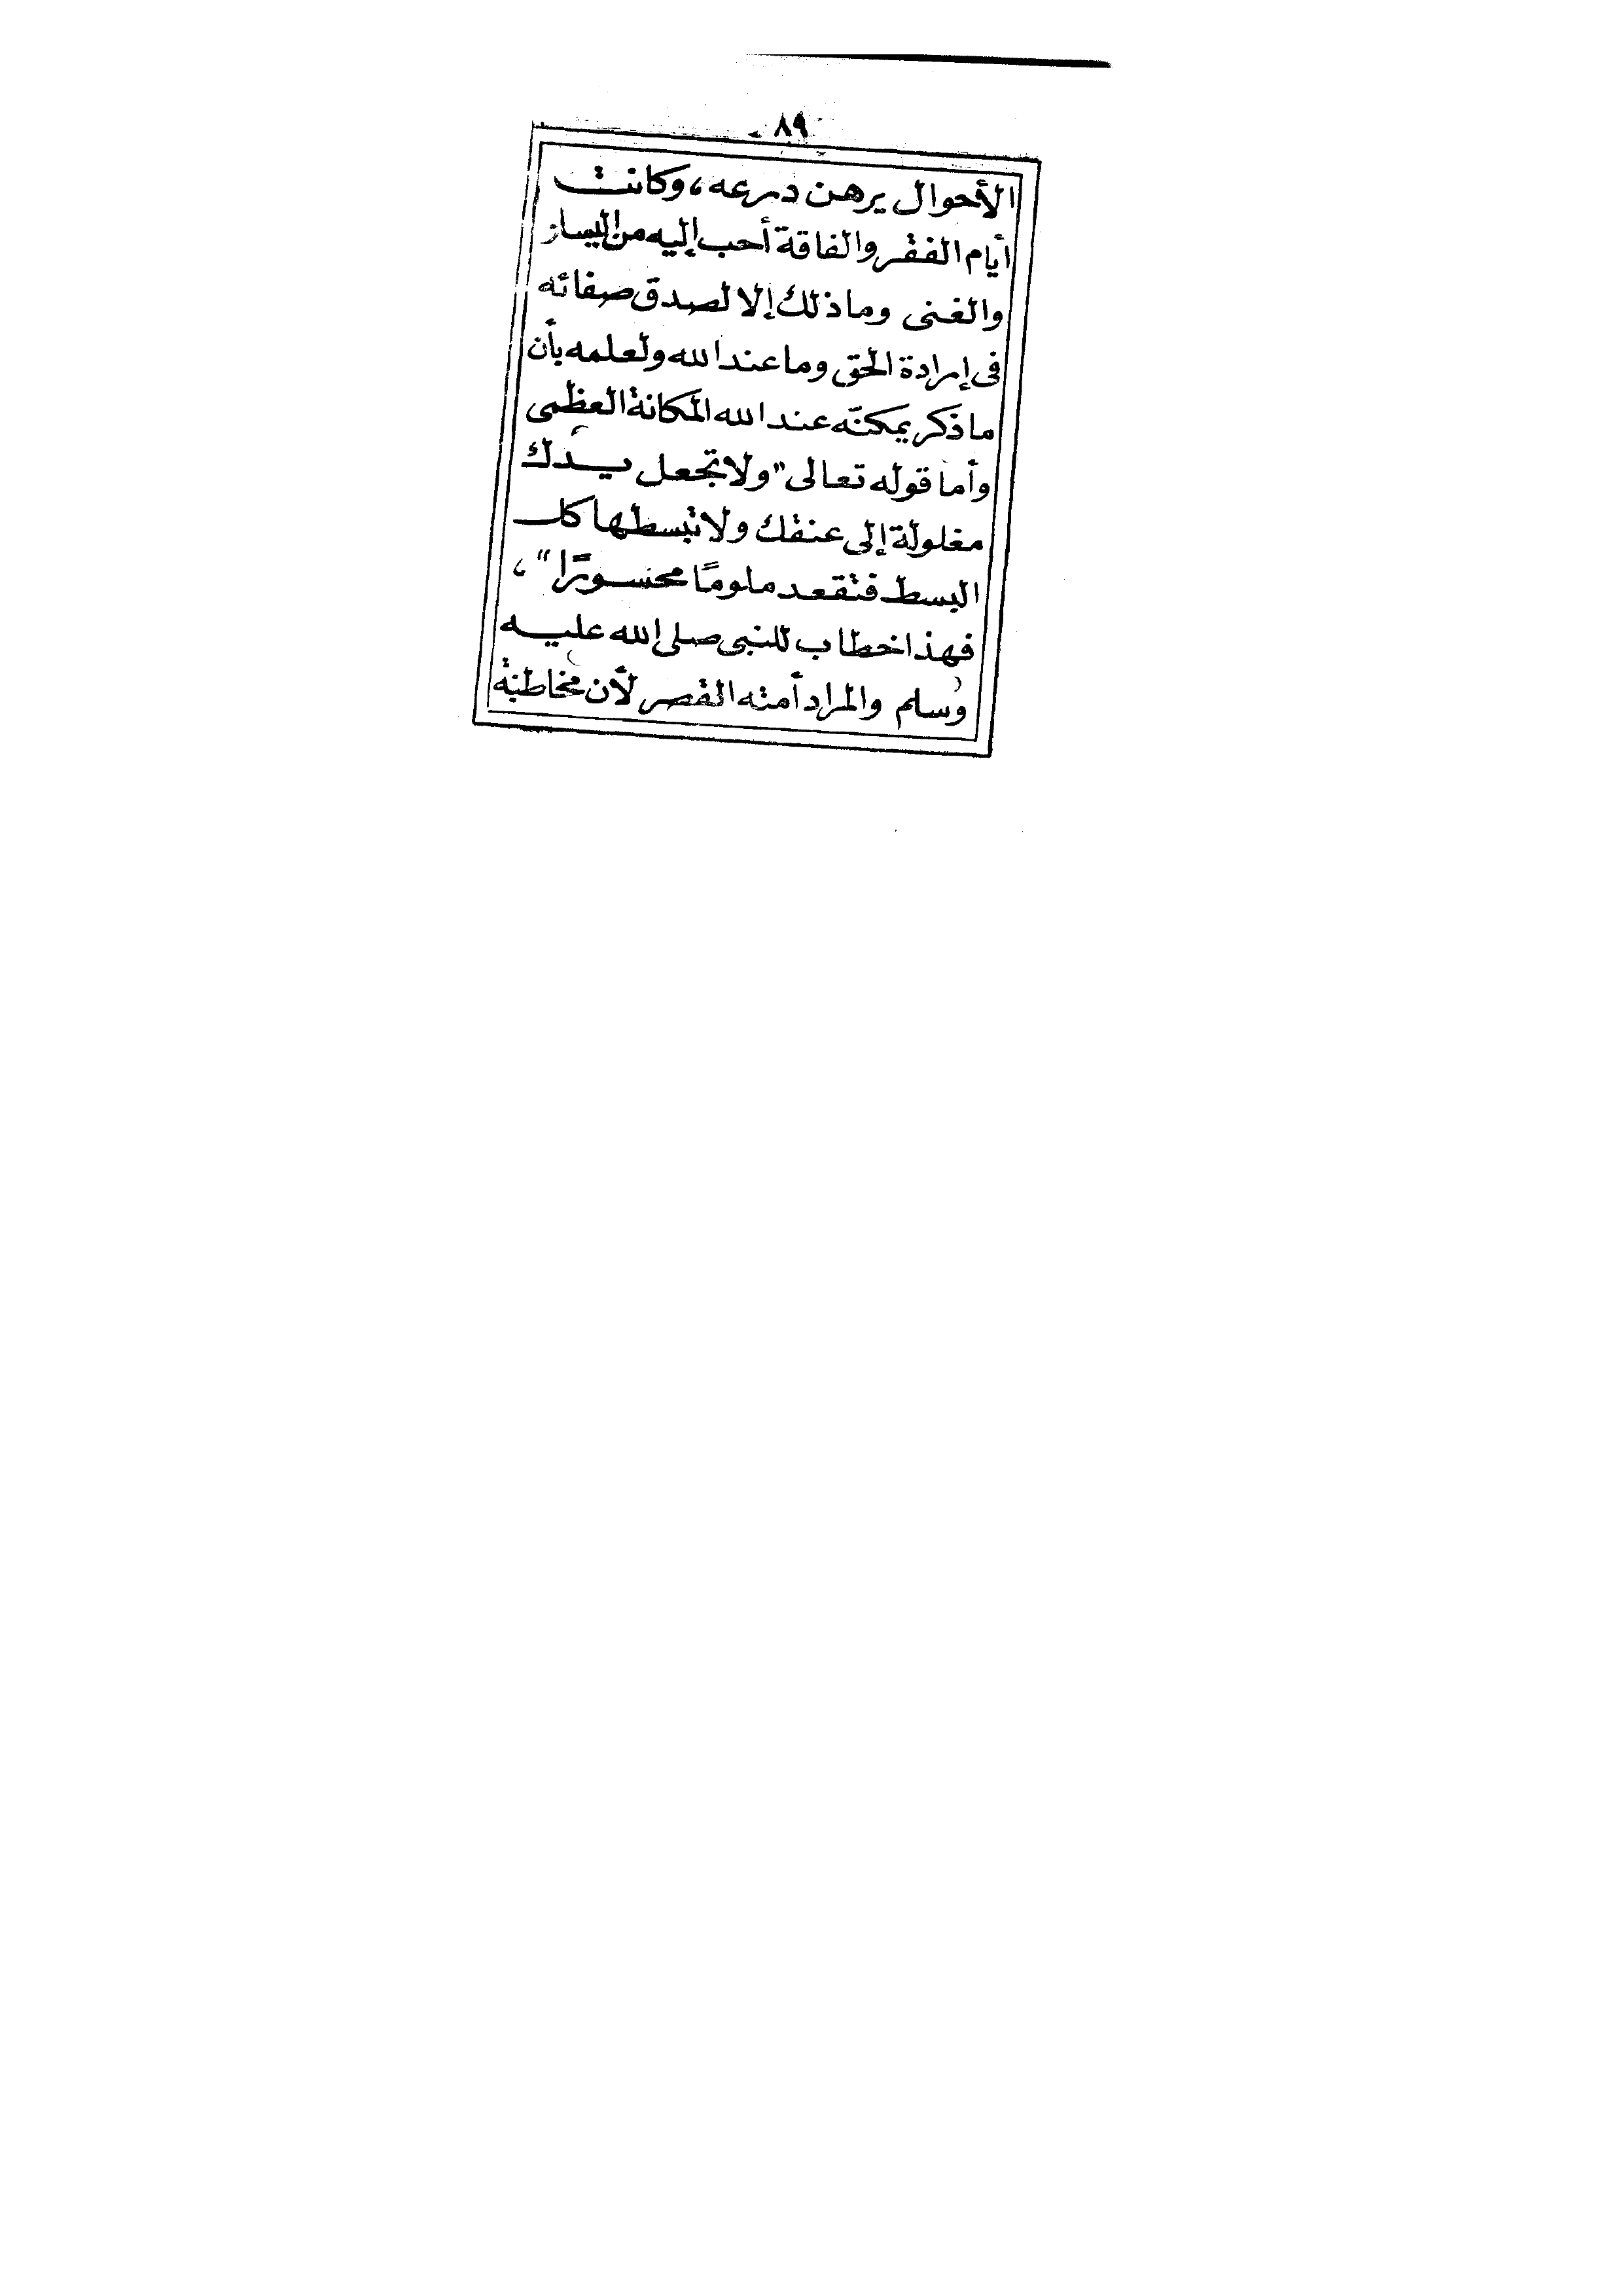 ٨٩
الأحوال يرهن درعه، وكانت
أيام الفقر والفاقة أحب إليه من اليسار
والغنى وما ذلك إلا لصدق صفائه
فى إرادة الحق وما عند الله ولعلمه بأن
ما ذكر يمكنّه عند الله المكانة العظمى
وأما قوله تعالى "ولا تجعل يدك
مغلولة إلى عنقك ولا تبسطها كل
البسط فتقعد ملومًا محسورًا"،
فهذا خطاب للنبى صلى الله عليه
وسلم والمراد أمته القصر لأن مخاطبة